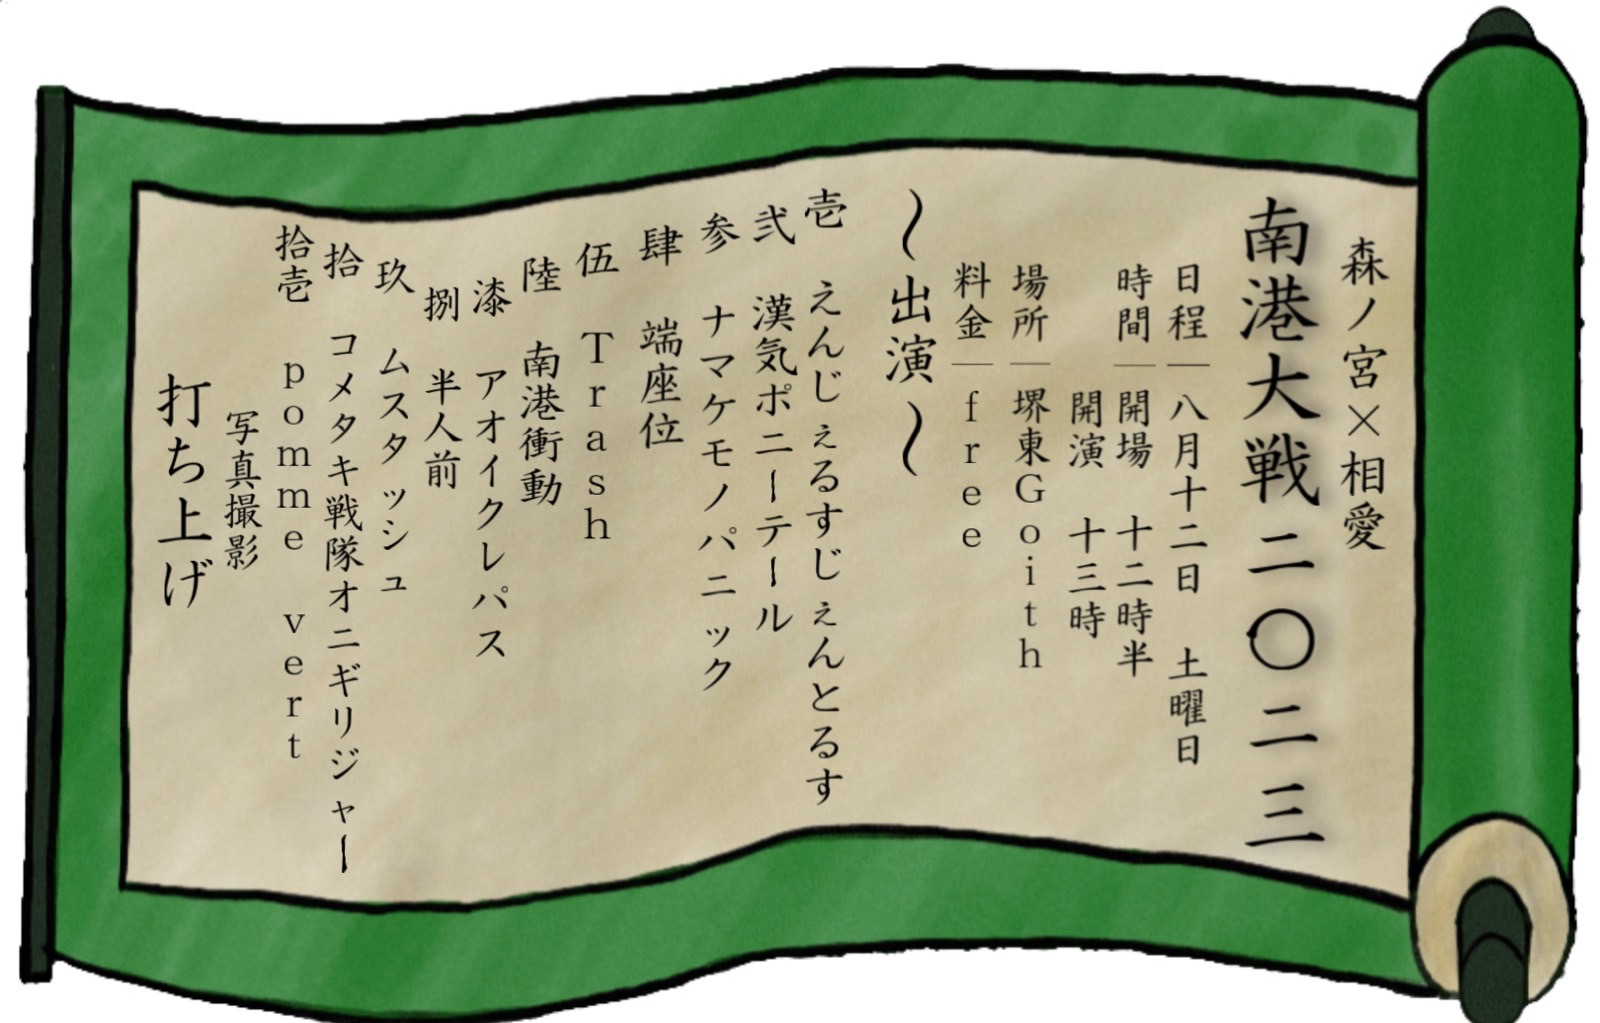 森ノ宮×相愛
南港大戦二〇二三
日程―八月十二日　土曜日
時間―開場　十二時半
開演　十三時
場所―堺東Goith
料金―free
～出演～
壱　えんじぇるすじぇんとるす
弐　漢気ポニーテール
参　ナマケモノパニック
肆　端座位
伍　Trash
陸　南港衝動
漆　アオイクレパス
捌　半人前
玖　ムスタッシュ
拾　コメタキ戦隊オニギリジャー
拾壱　pomme vert
写真撮影
打ち上げ